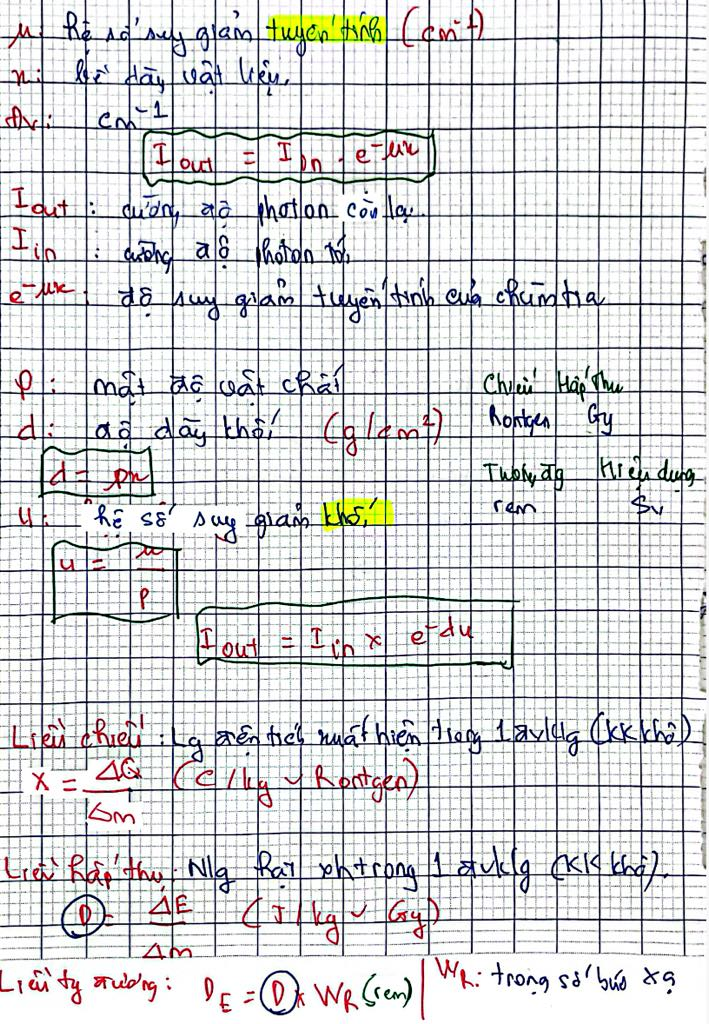 μ: hệ số suy giảm tuyến tính (cm⁻¹)
x: bề dày vật liệu.
Đv: cm⁻¹
I out = I in . e^-μx
I out : cường độ photon còn lại.
I in : cường độ photon tới
e^-μx : độ suy giảm tuyến tính của chùm tia
ρ: mật độ vật chất
d: độ dày khối (g/cm²)
d = ρx
u: hệ số suy giảm khối
u = μ/ρ
I out = I in x e^-du
Chiếu Hấp thu
Rontgen Gy
Tương đg Hiệu dụng
rem Sv
Liều chiếu: Lg điện tích xuất hiện trong 1 đvklg (KK khô)
X = ΔQ/Δm (C/kg ~ Rontgen)
Liều hấp thụ: Nlg hạt trong 1 đvklg (KK khô).
D = ΔE/Δm (J/kg ~ Gy)
Liều tg đương: D_E = D x W_R (rem) | W_R: trọng số bức xạ